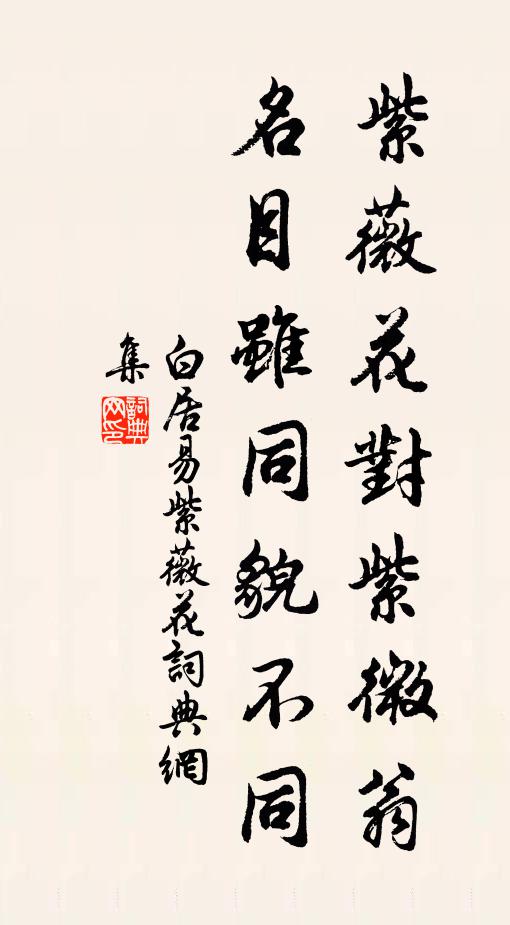 紫薇花對紫微翁
名目雖同貌不同
白居易紫薇花詞典網
集
詞典網印